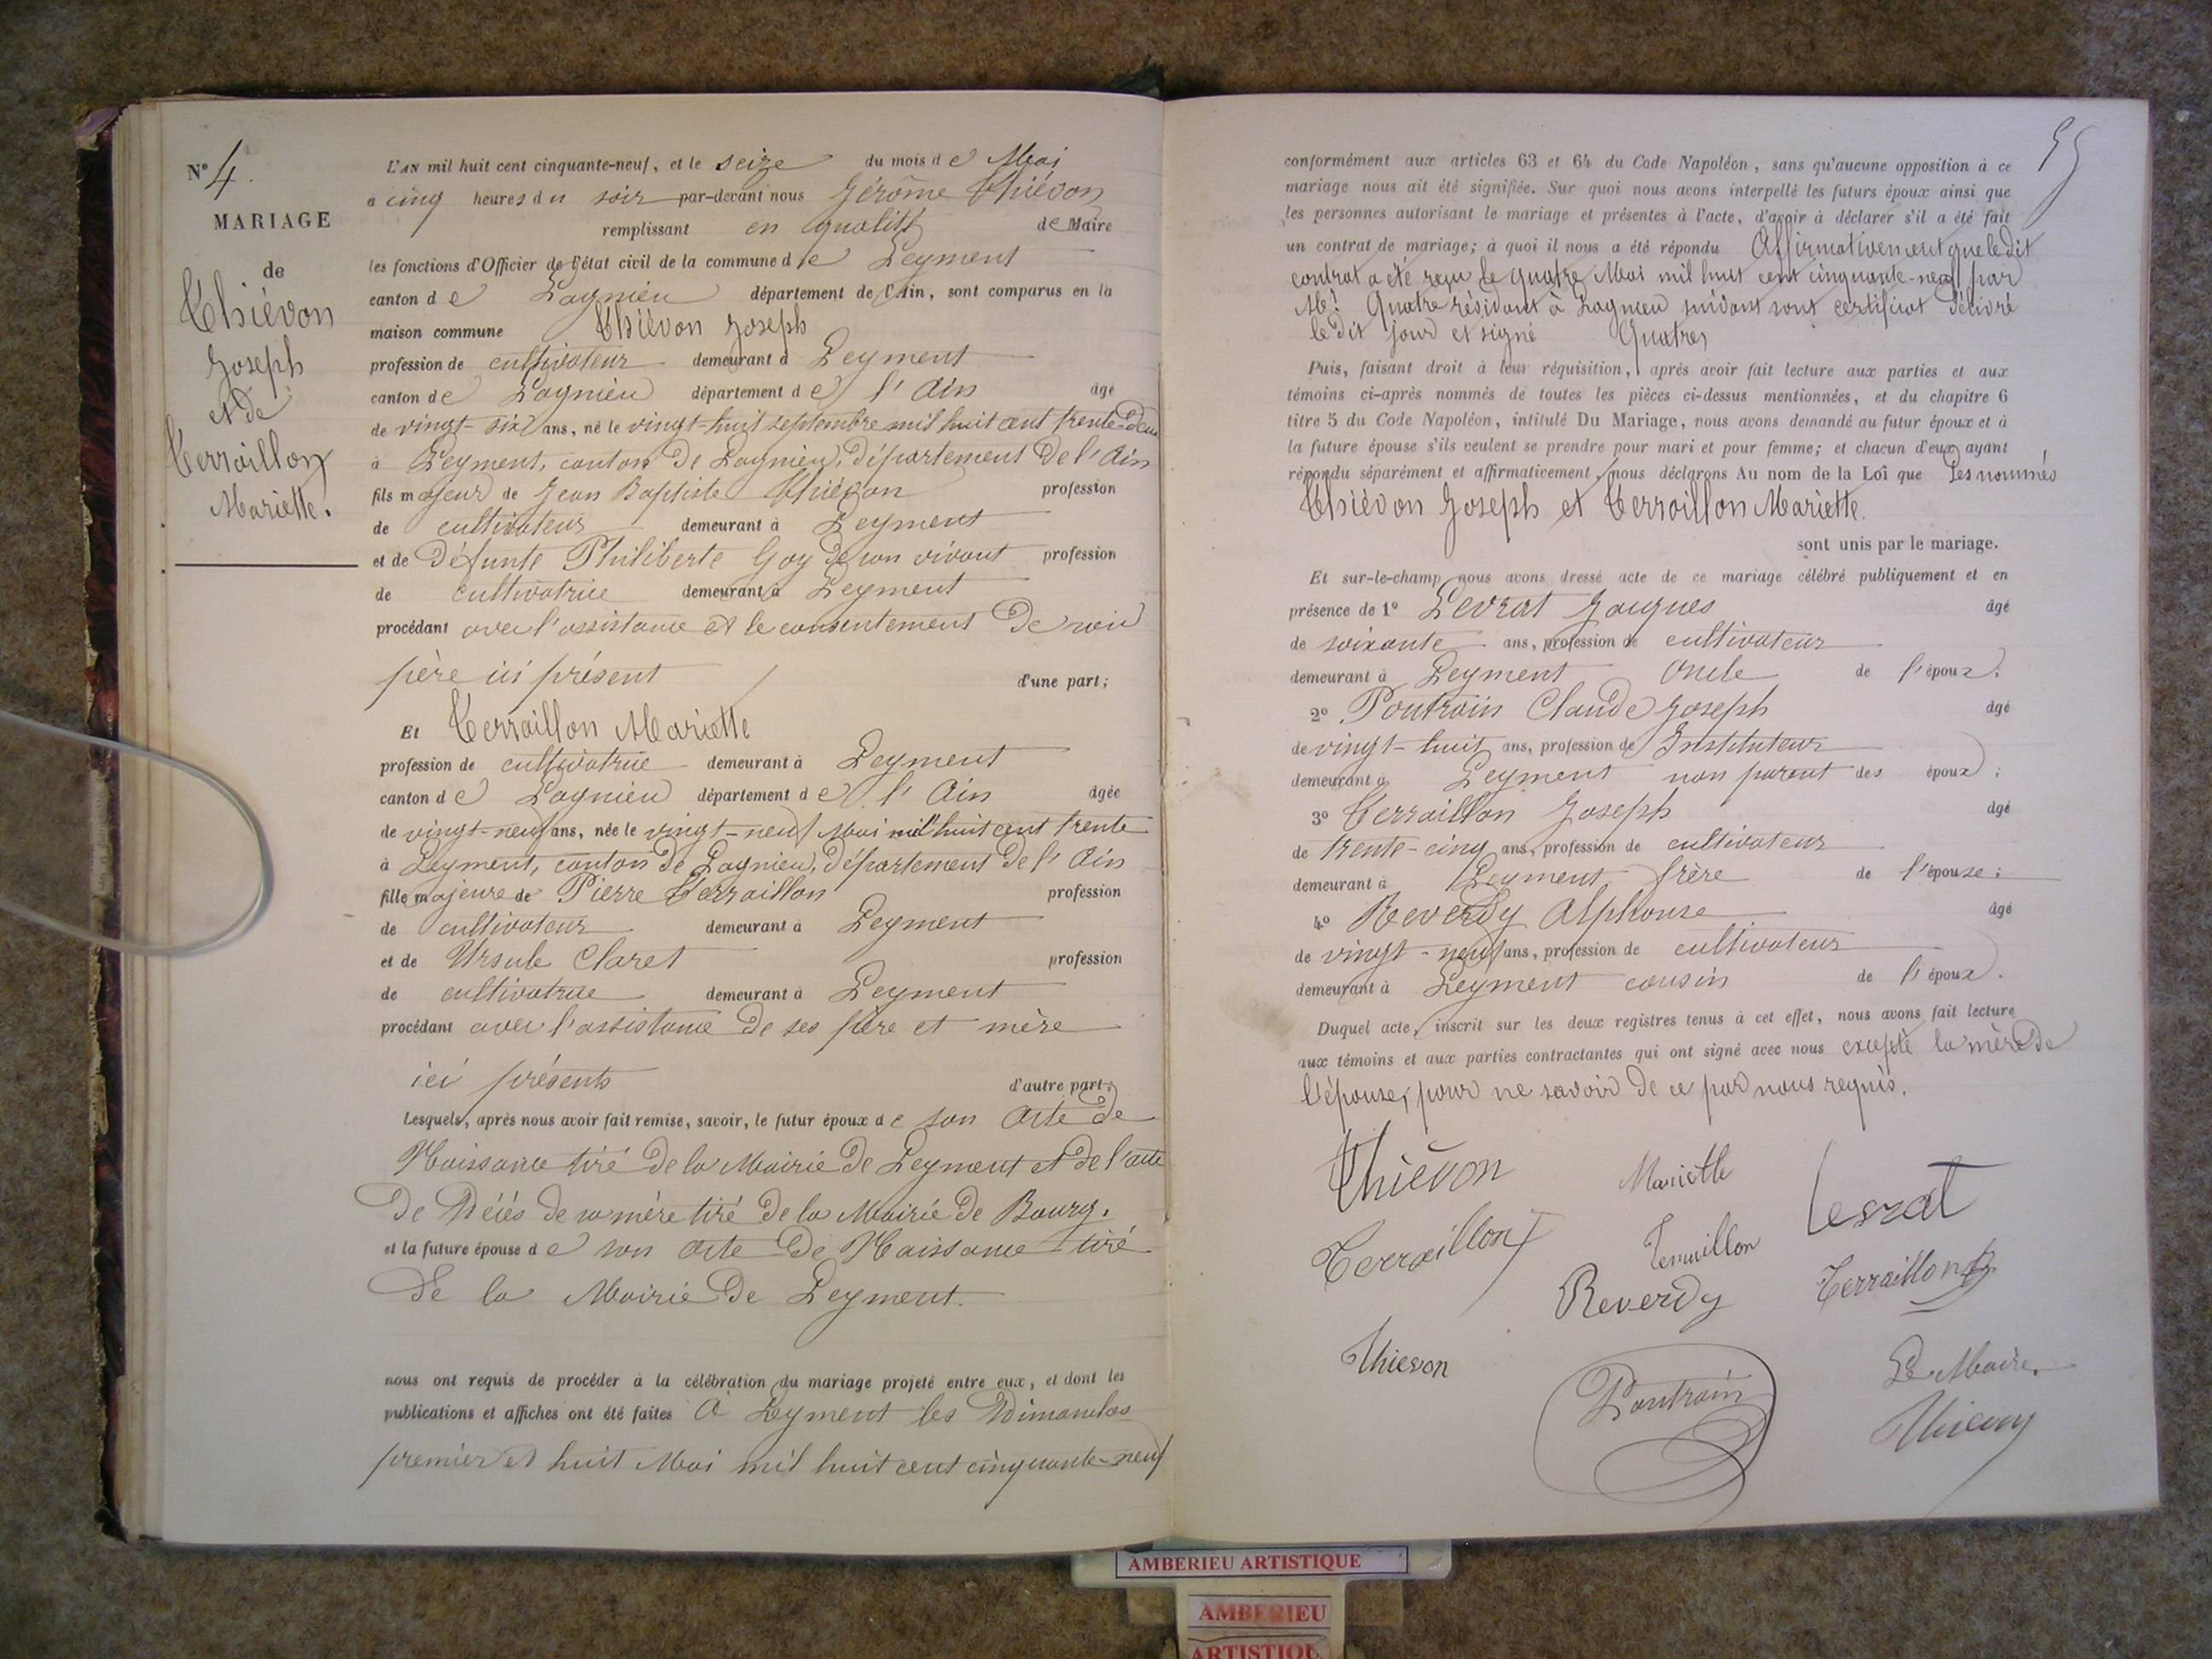 N° 4.
MARIAGE
de
Thiévon
Joseph
et de
Terraillon
Mariette.
L'AN mil huit cent cinquante-neuf, et le seize du mois de Mai
à cinq heures du soir par-devant nous Jérôme Thiévon
remplissant en qualité de Maire
les fonctions d'Officier de l'état civil de la commune de Leyment
canton de Lagnieu département de l'Ain, sont comparus en la
maison commune Thiévon Joseph
profession de cultivateur demeurant à Leyment
canton de Lagnieu département de l'Ain âgé
de vingt-six ans, né le vingt-huit septembre mil huit cent trente-deux
à Leyment, canton de Lagnieu, département de l'Ain
fils majeur de Jean Baptiste Thiévon profession
de cultivateur demeurant à Leyment
et de défunte Philiberte Goy de son vivant profession
de cultivatrice demeurant à Leyment
procédant avec l'assistance et le consentement de son
père ici présent d'une part;
Et Terraillon Mariette
profession de cultivatrice demeurant à Leyment
canton de Lagnieu département de l'Ain âgée
de vingt-neuf ans, née le vingt-neuf Mai mil huit cent trente
à Leyment, canton de Lagnieu, département de l'Ain
fille majeure de Pierre Terraillon profession
de cultivateur demeurant à Leyment
et de Ursule Claret profession
de cultivatrice demeurant à Leyment
procédant avec l'assistance de ses père et mère
ici présents d'autre part;
Lesquels, après nous avoir fait remise, savoir, le futur époux de son Acte de
Naissance tiré de la Mairie de Leyment et de l'acte
de Décés de sa mère tiré de la Mairie de Bourg.
et la future épouse de son Acte de Naissance tiré
de la Mairie de Leyment.
nous ont requis de procéder à la célébration du mariage projeté entre eux, et dont les
publications et affiches ont été faites à Leyment les Dimanches
premier et huit Mai mil huit cent cinquante-neuf
conformément aux articles 63 et 64 du Code Napoléon, sans qu'aucune opposition à ce
mariage nous ait été signifiée. Sur quoi nous avons interpellé les futurs époux ainsi que
les personnes autorisant le mariage et présentes à l'acte, d'avoir à déclarer s'il a été fait
un contrat de mariage; à quoi il nous a été répondu Affirmativement que le dit
contrat a été reçu le quatre Mai mil huit cent cinquante-neuf par
Me Quatre résidant à Lagnieu suivant sont certificat délivré
le dit jour et signé Quatre
Puis, faisant droit à leur réquisition, après avoir fait lecture aux parties et aux
témoins ci-après nommés de toutes les pièces ci-dessus mentionnées, et du chapitre 6
titre 5 du Code Napoléon, intitulé Du Mariage, nous avons demandé au futur époux et à
la future épouse s'ils veulent se prendre pour mari et pour femme; et chacun d'eux ayant
répondu séparément et affirmativement, nous déclarons Au nom de la Loi que Les nommés
Thiévon Joseph et Terraillon Mariette.
sont unis par le mariage.
Et sur-le-champ nous avons dressé acte de ce mariage célébré publiquement et en
présence de 1° Levrat Jacques âgé
de soixante ans, profession de cultivateur
demeurant à Leyment oncle de l'époux;
2° Pontrain Claude Joseph âgé
de vingt-huit ans, profession de Instituteur
demeurant à Leyment non parent des époux;
3° Terraillon Joseph âgé
de trente-cinq ans, profession de cultivateur
demeurant à Leyment frère de l'épouse;
4° Reverdy Alphonse âgé
de vingt-neuf ans, profession de cultivateur
demeurant à Leyment cousin de l'époux.
Duquel acte, inscrit sur les deux registres tenus à cet effet, nous avons fait lecture
aux témoins et aux parties contractantes qui ont signé avec nous excepté la mère de
l'épouse, pour ne savoir de ce par nous requis.
Thiévon Mariette Levrat
Terraillon Terraillon Terraillon
Reverdy
Thievon Pontrain Le Maire,
Thievon
AMBERIEU ARTISTIQUE
AMBERIEU
ARTISTIQUE